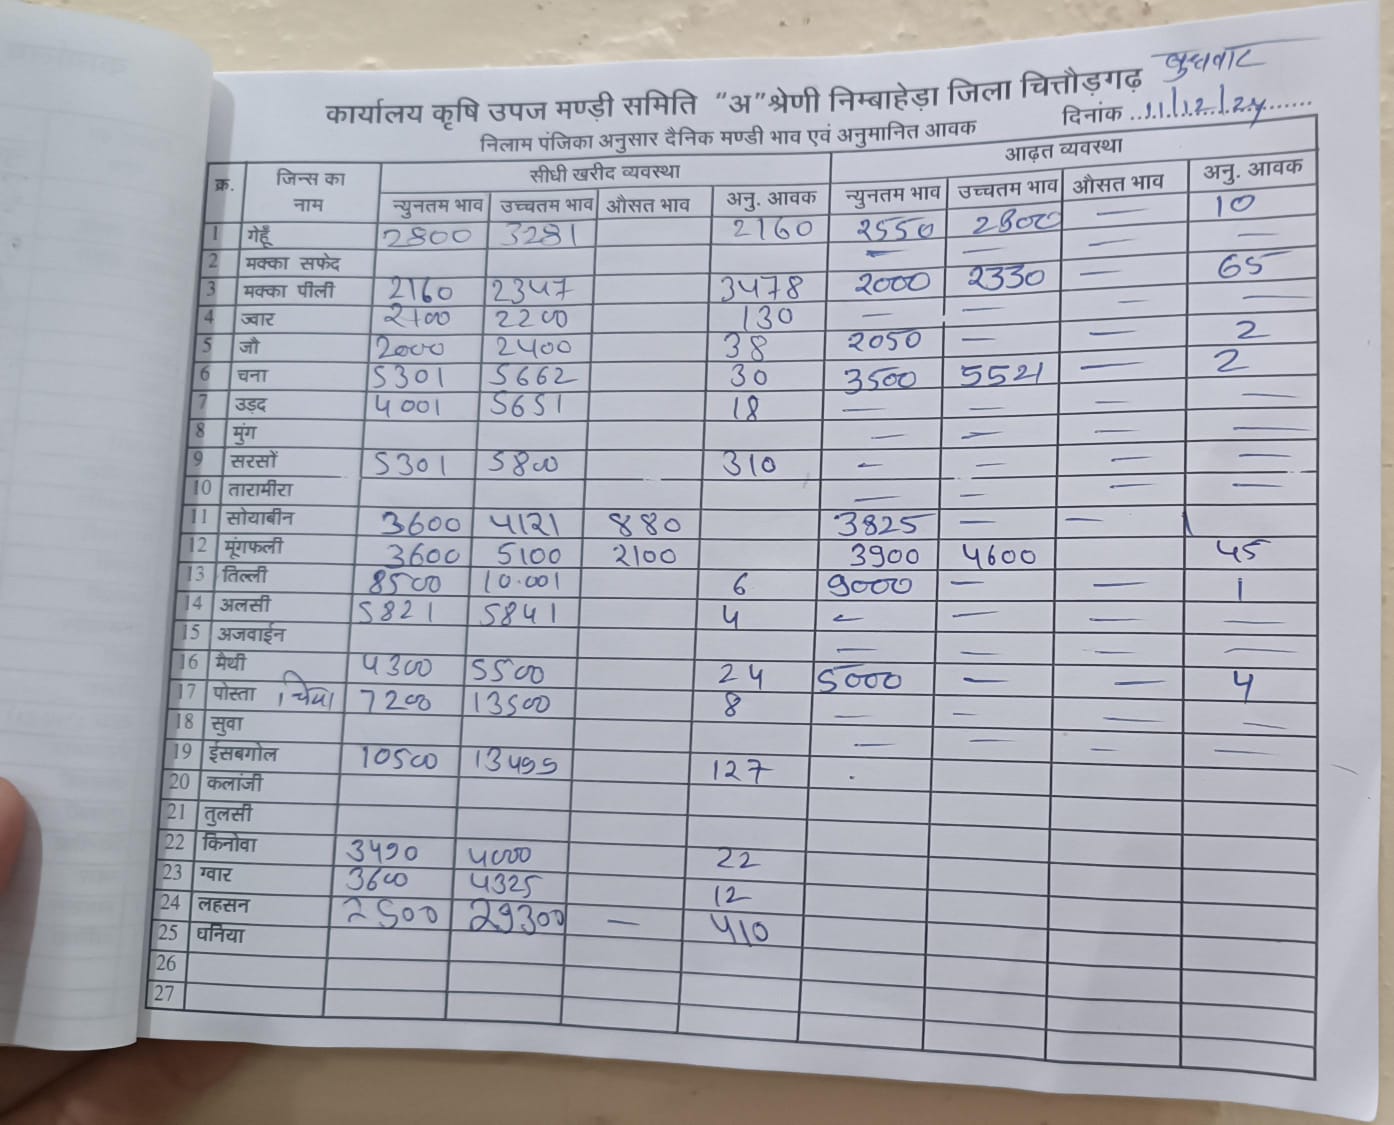 बुधवार
कार्यालय कृषि उपज मण्डी समिति "अ" श्रेणी निम्बाहेड़ा जिला चित्तौड़गढ़
निलाम पंजिका अनुसार दैनिक मण्डी भाव एवं अनुमानित आवक दिनांक ..11/12/24......
क्र. जिन्स का नाम सीधी खरीद व्यवस्था आढ़त व्यवस्था
न्युनतम भाव उच्चतम भाव औसत भाव अनु. आवक न्युनतम भाव उच्चतम भाव औसत भाव अनु. आवक
1 गेहूँ 2800 3281 2160 2550 2800 — 10
2 मक्का सफेद — — — —
3 मक्का पीली 2160 2347 3478 2000 2330 — 65
4 ज्वार 2100 2200 130 — — — —
5 जौ 2000 2400 38 2050 — — 2
6 चना 5301 5662 30 3500 5521 — 2
7 उड़द 4001 5651 18 — — — —
8 मुंग — — — —
9 सरसों 5301 5800 310 — — — —
10 तारामीरा — — — —
11 सोयाबीन 3600 4121 880 3825 — — 1
12 मूंगफली 3600 5100 2100 3900 4600 45
13 तिल्ली 8500 10.001 6 9000 — — 1
14 अलसी 5821 5841 4 — — — —
15 अजवाईन — — — —
16 मैथी 4300 5500 24 5000 — — 4
17 पोस्ता 7200 13500 8 — — — —
18 सुवा — — — —
19 ईसबगोल 10500 13499 127 .
20 कलांजी
21 तुलसी
22 किनोवा 3490 4000 22
23 ग्वार 3600 4325 12
24 लहसन 2500 29300 — 410
25 धनिया
26
27